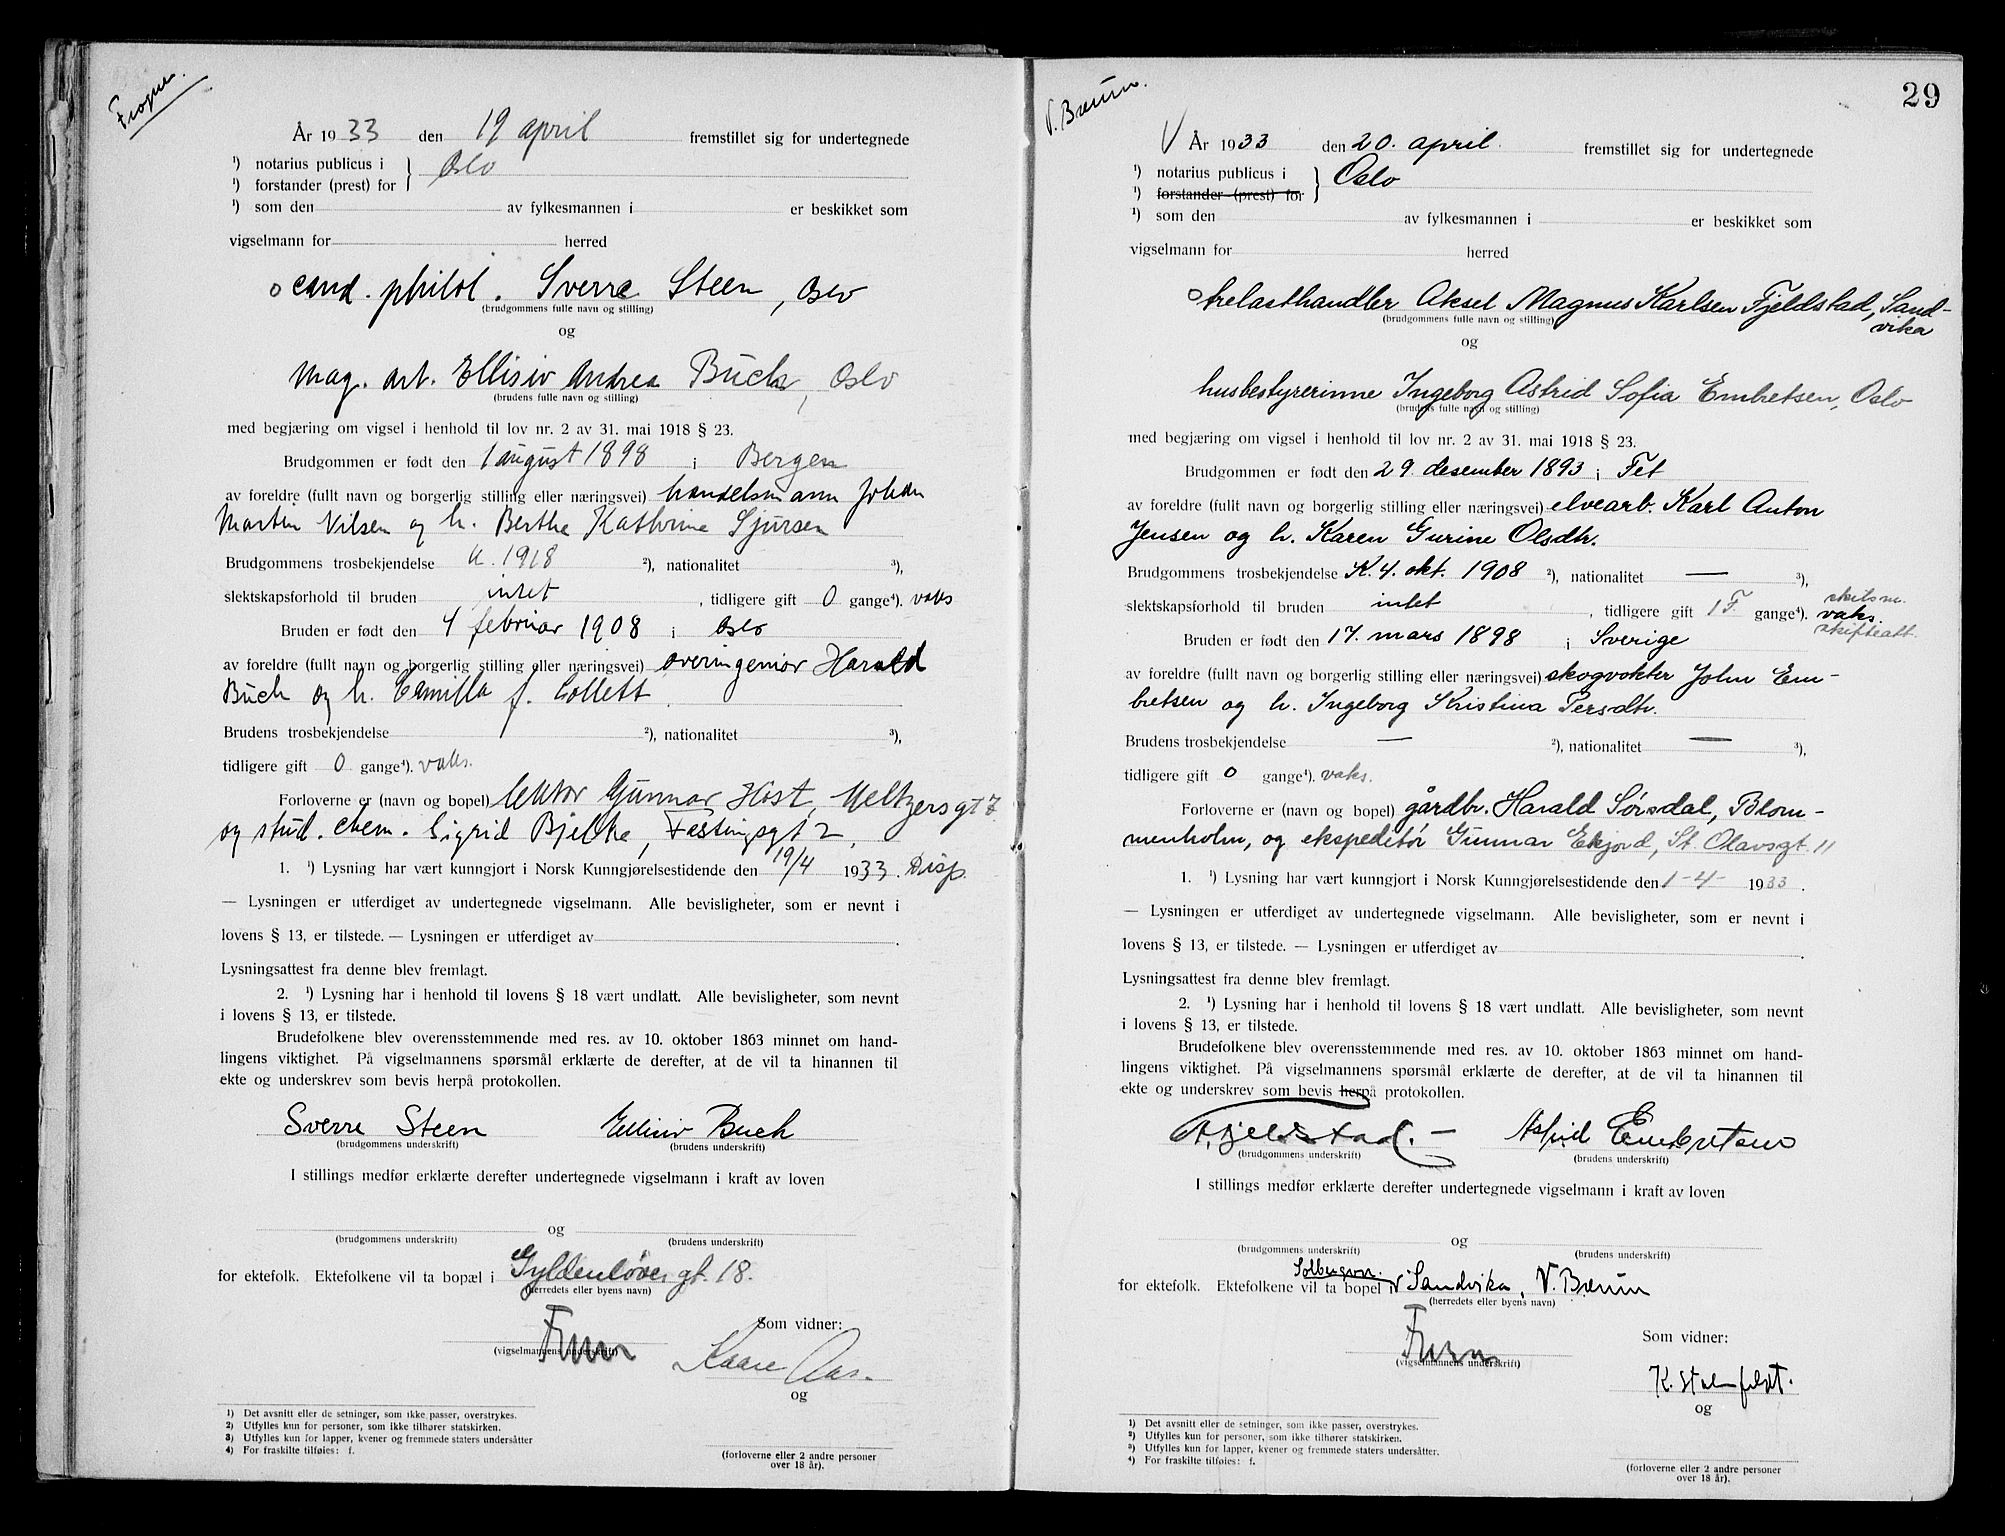 Frogner.
År 1933 den 19 april fremstillet sig for undertegnede
¹) notarius publicus i } Oslo
¹) forstander (prest) for
¹) som den av fylkesmannen i er beskikket som
vigselmann for herred
cand. philol. Sverre Steen, Oslo
(brudgommens fulle navn og stilling)
og
mag. art. Ellisiv Andrea Buch, Oslo
(brudens fulle navn og stilling)
med begjæring om vigsel i henhold til lov nr. 2 av 31. mai 1918 § 23.
Brudgommen er født den 1 august 1898 i Bergen
av foreldre (fullt navn og borgerlig stilling eller næringsvei) handelsmann Johan
Martin Nilsen og h. Berthe Kathrine Sjursen
Brudgommens trosbekjendelse u. 1918 ²), nationalitet ³),
slektskapsforhold til bruden intet, tidligere gift 0 gange⁴). vaks
Bruden er født den 4 februar 1908 i Oslo
av foreldre (fullt navn og borgerlig stilling eller næringsvei) overingeniør Harald
Buch og h. Camilla f. Collett
Brudens trosbekjendelse ²), nationalitet ³),
tidligere gift 0 gange⁴). vaks.
Forloverne er (navn og bopel) lektor Gunnar Høst, Meltzersgt 7
og stud. chem. Sigrid Bjelke, Fæstingsgt 2,
1. ¹) Lysning har vært kunngjort i Norsk Kunngjørelsestidende den 19/4 1933. Disp.
— Lysningen er utferdiget av undertegnede vigselmann. Alle bevisligheter, som er nevnt i
lovens § 13, er tilstede. — Lysningen er utferdiget av .
Lysningsattest fra denne blev fremlagt.
2. ¹) Lysning har i henhold til lovens § 18 vært undlatt. Alle bevisligheter, som nevnt
i lovens § 13, er tilstede.
Brudefolkene blev overensstemmende med res. av 10. oktober 1863 minnet om hand-
lingens viktighet. På vigselmannens spørsmål erklærte de derefter, at de vil ta hinannen til
ekte og underskrev som bevis herpå protokollen.
Sverre Steen Ellisiv Buch
(brudgommens underskrift) (brudens underskrift)
I stillings medfør erklærte derefter undertegnede vigselmann i kraft av loven
og
(brudgommens underskrift) (brudens underskrift)
for ektefolk. Ektefolkene vil ta bopæl i Gyldenløves gt. 18.
(herredets eller byens navn)
Som vidner:
(vigselmannens underskrift) Kaare Aas.
og
1) Det avsnitt eller de setninger, som ikke passer, overstrykes.
2) Utfylles kun for personer, som ikke tilhører statskirken.
3) Utfylles kun for lapper, kvener og fremmede staters undersåtter
4) For fraskilte tilføies: f.
(forloverne eller 2 andre personer
over 18 år).
29
V. Bærum.
V År 1933 den 20. april. fremstillet sig for undertegnede
¹) notarius publicus i } Oslo
¹) forstander (prest) for
¹) som den av fylkesmannen i er beskikket som
vigselmann for herred
trelasthandler Aksel Magnus Karlsen Fjeldstad, Sand-
vika
(brudgommens fulle navn og stilling)
og
husbestyrerinne Ingeborg Astrid Sofia Embretsen, Oslo
(brudens fulle navn og stilling)
med begjæring om vigsel i henhold til lov nr. 2 av 31. mai 1918 § 23.
Brudgommen er født den 29 desember 1893 i Fet
av foreldre (fullt navn og borgerlig stilling eller næringsvei) elvearb. Karl Anton
Jensen og h. Karen Gurine Olsdtr.
Brudgommens trosbekjendelse K. 4. okt. 1908 ²), nationalitet — ³),
slektskapsforhold til bruden intet, tidligere gift 1 F. gange⁴). skilsm. vaks. skifteatt.
Bruden er født den 17. mars 1898 i Sverige
av foreldre (fullt navn og borgerlig stilling eller næringsvei) skogvokter John Em-
bretsen og h. Ingeborg Kristina Persdtr.
Brudens trosbekjendelse — ²), nationalitet — ³),
tidligere gift 0 gange⁴). vaks.
Forloverne er (navn og bopel) gårdbr. Harald Sørsdal, Blom-
menholm, og ekspeditør Gunnar Ekjord, St. Olavsgt. 11
1. ¹) Lysning har vært kunngjort i Norsk Kunngjørelsestidende den 1-4- 1933.
— Lysningen er utferdiget av undertegnede vigselmann. Alle bevisligheter, som er nevnt i
lovens § 13, er tilstede. — Lysningen er utferdiget av .
Lysningsattest fra denne blev fremlagt.
2. ¹) Lysning har i henhold til lovens § 18 vært undlatt. Alle bevisligheter, som nevnt
i lovens § 13, er tilstede.
Brudefolkene blev overensstemmende med res. av 10. oktober 1863 minnet om hand-
lingens viktighet. På vigselmannens spørsmål erklærte de derefter, at de vil ta hinannen til
ekte og underskrev som bevis herpå protokollen.
A. Fjeldstad. — Astrid Embretsen
(brudgommens underskrift) (brudens underskrift)
I stillings medfør erklærte derefter undertegnede vigselmann i kraft av loven
og
(brudgommens underskrift) (brudens underskrift)
Solbergvn.
for ektefolk. Ektefolkene vil ta bopel i Sandvika, V. Bærum
(herredets eller byens navn)
Som vidner:
(vigselmannens underskrift)
og
1) Det avsnitt eller de setninger, som ikke passer, overstrykes.
2) Utfylles kun for personer, som ikke tilhører statskirken.
3) Utfylles kun for lapper, kvener og fremmede staters undersåtter.
4) For fraskilte tilføies: f.
(forloverne eller 2 andre personer
over 18 år).